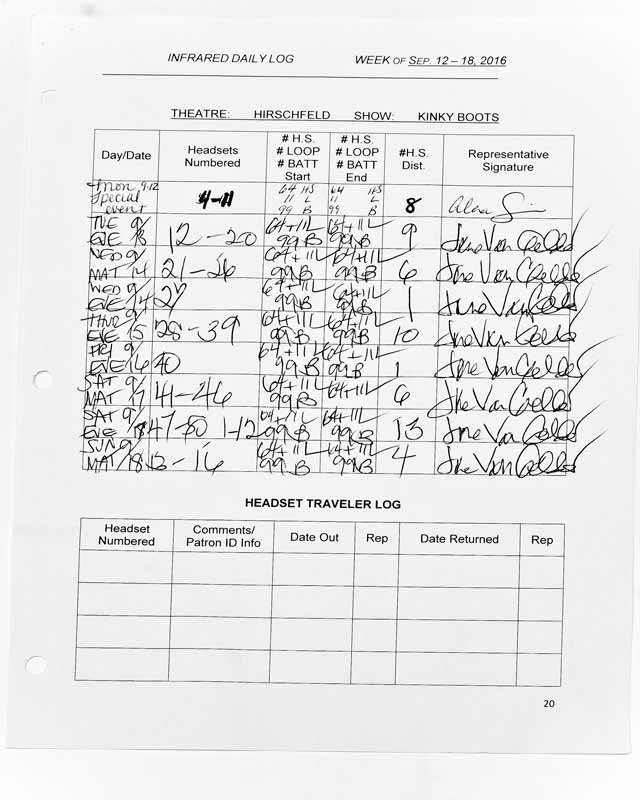 INFRARED DAILY LOG WEEK OF SEP. 12 – 18, 2016
THEATRE: HIRSCHFELD SHOW: KINKY BOOTS
Day/Date Headsets Numbered # H.S. # LOOP # BATT Start # H.S. # LOOP # BATT End #H.S. Dist. Representative Signature
Mon 9-12 Special event 4-11 64 HS 11 L 99 B 64 HS 11 L 99 B 8
TUE 9/ EVE 13 12-20 64+11L 99B 64+11L 99B 9
WED 9/ MAT 14 21-26 64+11L 99B 64+11L 99B 6
WED 9/ EVE 14 27 64+11L 99B 64+11L 99B 1
THUR 9/ EVE 15 28-39 64+11L 99B 64+11L 99B 10
FRI 9/ EVE 16 40 64+11L 99B 64+11L 99B 1
SAT 9/ MAT 17 41-46 64+11L 99B 64+11L 6
SAT 9/ EVE 47-50 1-12 64+11L 99B 64+11L 99B 13
SUN 9/ MAT 18 - 16 64+11L 99B 64+11L 99B 4
HEADSET TRAVELER LOG
Headset Numbered Comments/ Patron ID Info Date Out Rep Date Returned Rep
20